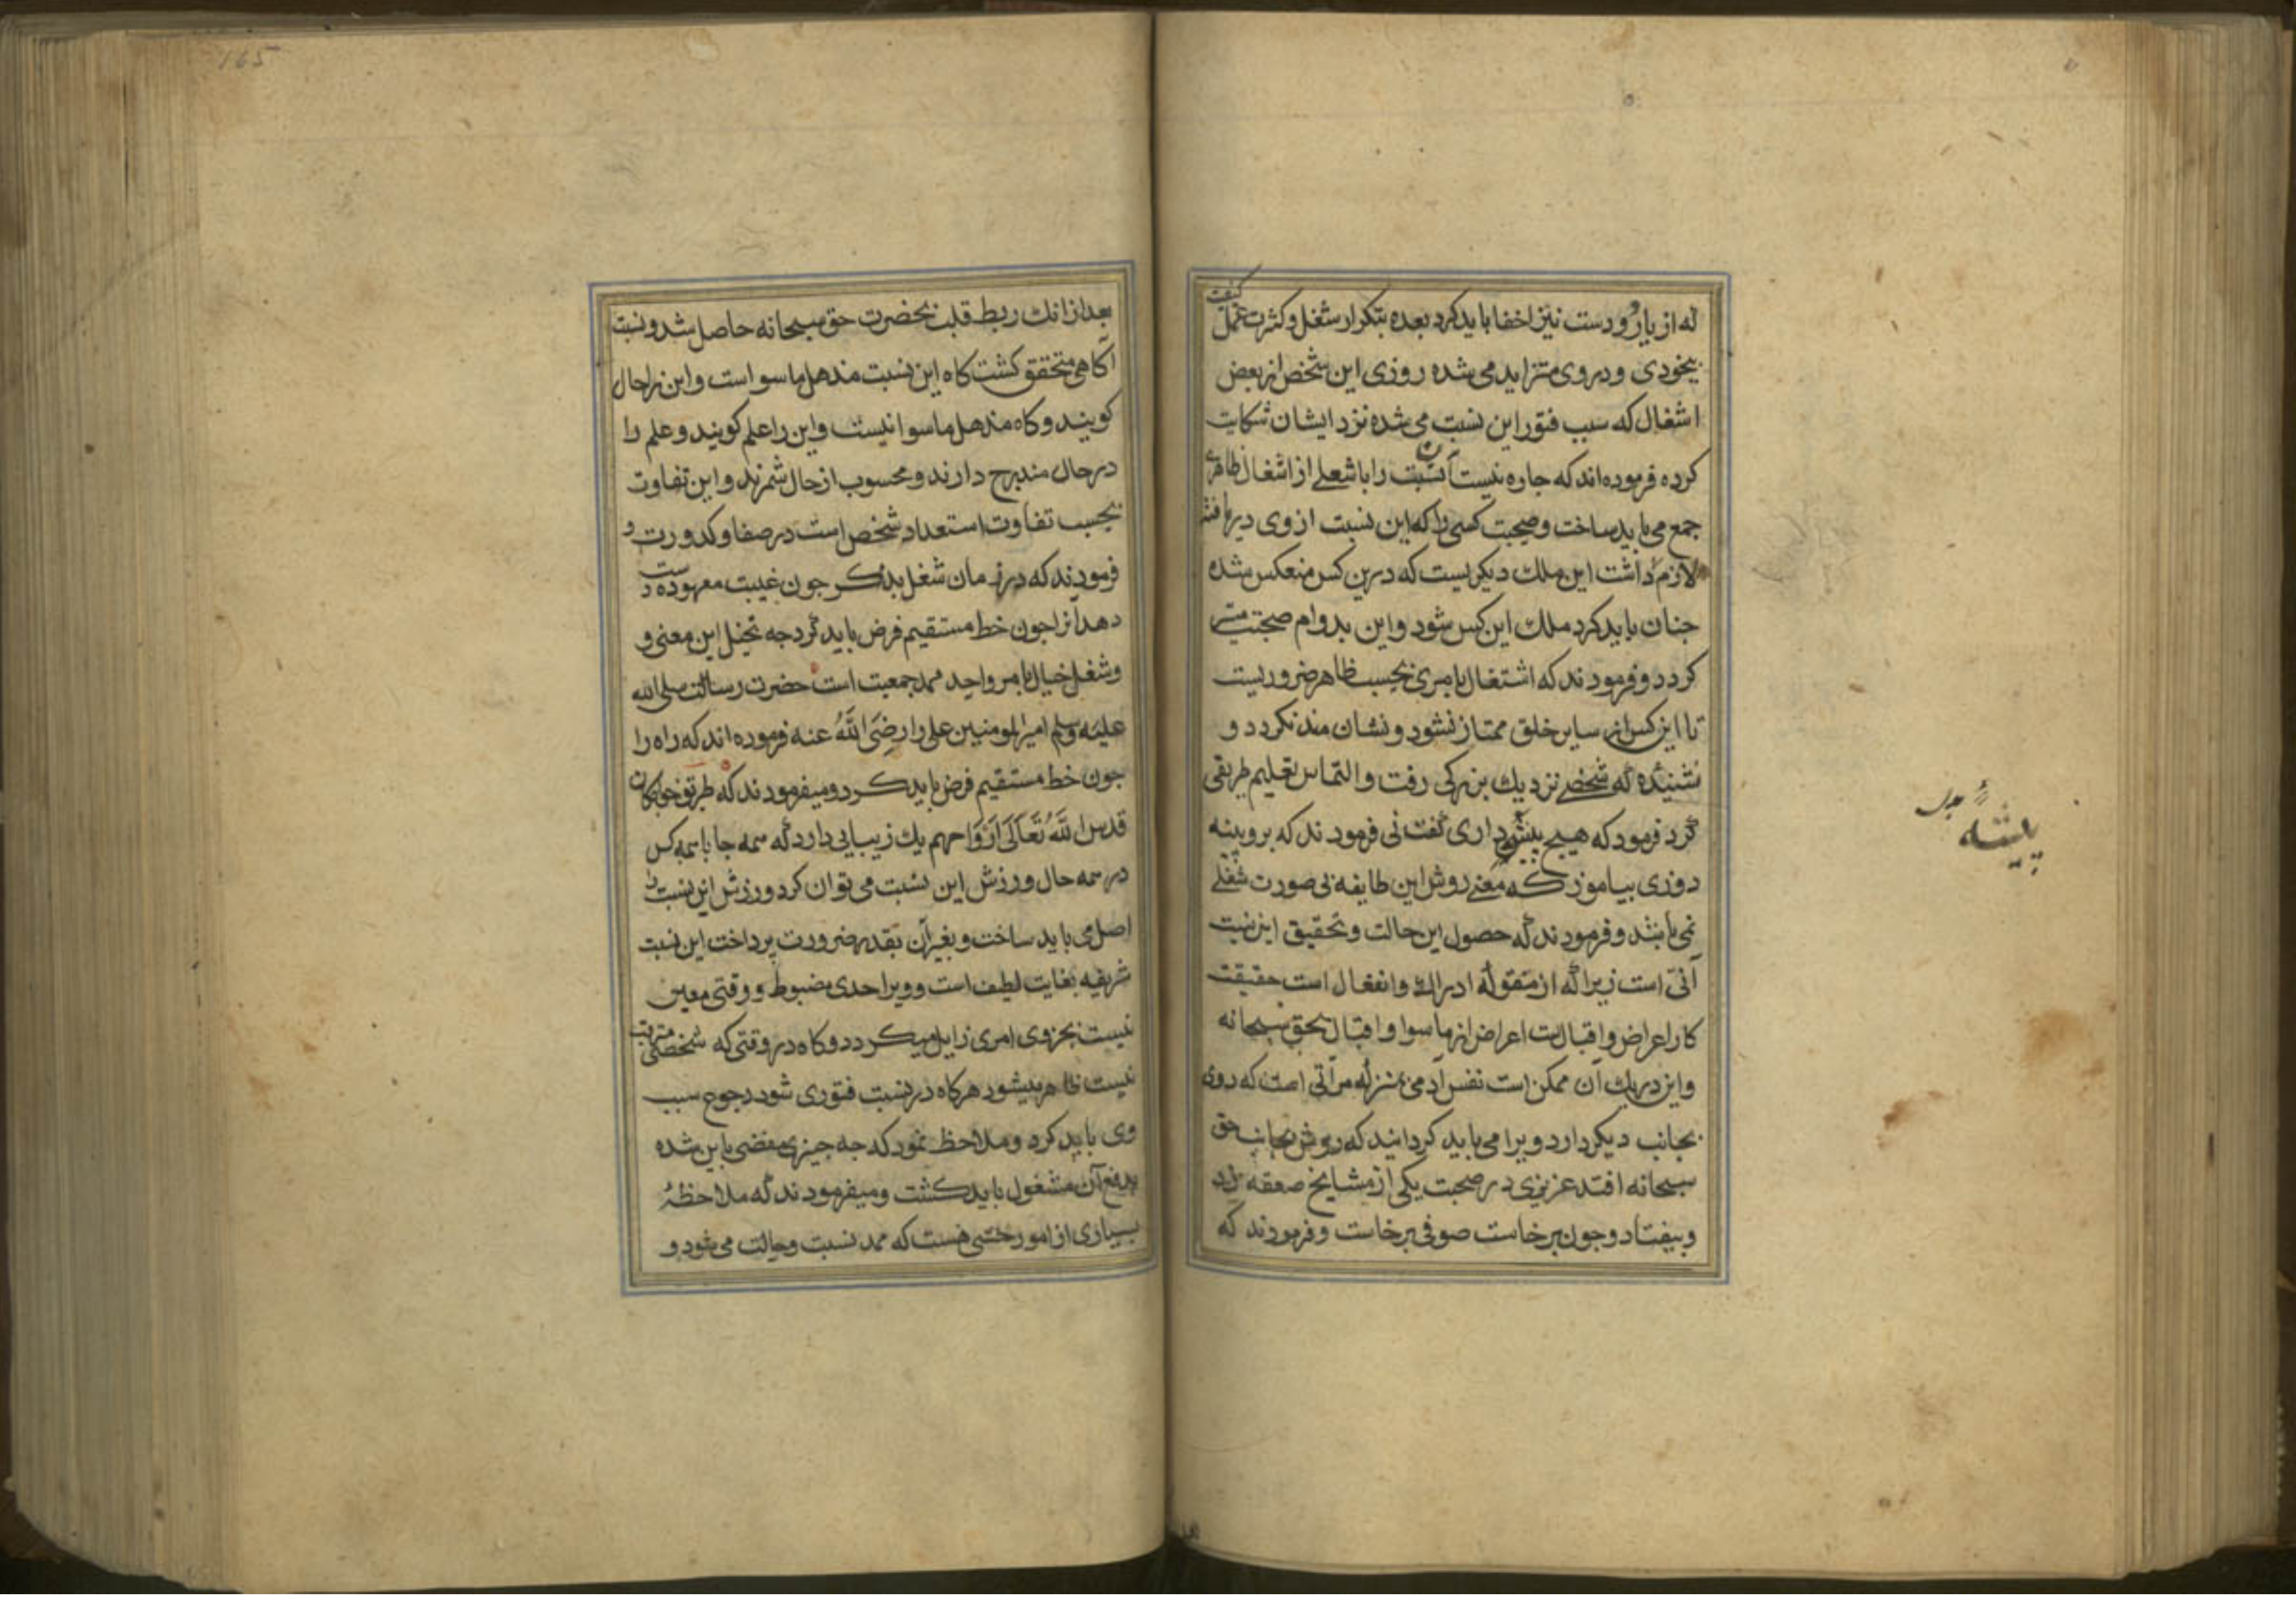 که از یار و دوست نیز اخفا باید کرد بعده بتکرار شغل و کثرت عمل کیفیت
بیخودی و در وی متزاید می شده روزی این شخص از بعض
اشغال که سبب فتور این نسبت می شده نزد ایشان شکایت
کرده فرموده اند که جاره نیست آن نسبت را با شغلی از اشغال ظاهری
جمع می باید ساخت و صحبت کسی را که این نسبت از وی دریافته
لازم داشت این ملک دیکریست که درین کس منعکس شده
جنان باید کرد ملک این کس شود و این بدوام صحبت میسر
کردد و فرمودند که اشتغال بامری بحسب ظاهر ضروریست
تا این کس از سایر خلق ممتاز نشود و نشان مند نکردد و
شنیده که شخصی نزدیک بزرکی رفت و التماس تعلیم طریقی
کرد فرمود که هیچ پیشه داری گفت نی فرمودند که برو پینه
دوزی بیاموز که معنی روش این طایفه بی صورت شغلی
نمی باشد و فرمودند که حصول این حالت و تحقیق این نسبت
آنی است زیرا که از مقوله ادراک و انفعال است حقیقت
کار اعراض و اقبالت اعراض از ماسوا و اقبال بحق سبحانه
و این در یک آن ممکن است نفس آدمی بمنزله مرآتی است که روی
بجانب دیکر دارد ویرا می باید کردانید که رویش بجانب حق
سبحانه افتد عزیزی در صحبت یکی از مشایخ صعقه زد
و بیفتاد و جون برخاست صوفی برخاست و فرمودند که
پیشه
بعد از انک ربط قلب بحضرت حق سبحانه حاصل شد و نسبت
آکاهی متحقق کشت کاه این نسبت مذهل ماسوا است و این را حال
کویند و کاه مذهل ماسوا نیست و این را علم کویند و علم را
در حال مندرج دارند و محسوب از حال شمرند و این تفاوت
بحسب تفاوت استعداد شخص است در صفا و کدورت و
فرمودند که در زمان شغل بذکر جون غیبت معهوده دست
دهد آنرا جون خط مستقیم فرض باید کرد جه تخیل این معنی و
و شغل خیال بامر واحد ممد جمعیت است حضرت رسالت صلی الله
علیه وسلم امیر المومنین علی را رضی الله عنه فرموده اند که راه را
جون خط مستقیم فرض باید کرد و میفرمودند که طریق خواجکان
قدس الله تعالی ارواحهم یک زیبایی دارد که همه جا با همه کس
در همه حال ورزش این نسبت می توان کرد ورزش این نسبت را
اصل می باید ساخت و بغیر آن بقدر ضرورت پرداخت این نسبت
شریفه بغایت لطیف است و ویرا حدی مضبوط و وقتی معین
نیست بجزوی امری زایل میکردد و کاه در وقتی که شخص مترقب
نیست ظاهر میشود هرکاه در نسبت فتوری شود رجوع سبب
وی باید کرد و ملاحظه نمود که جه جیزی مفضی باین شده
بدفع آن مشغول باید کشت و میفرمودند که ملاحظهٔ
بسیاری از امور حسی هست که ممد نسبت و حالت می شود و
165